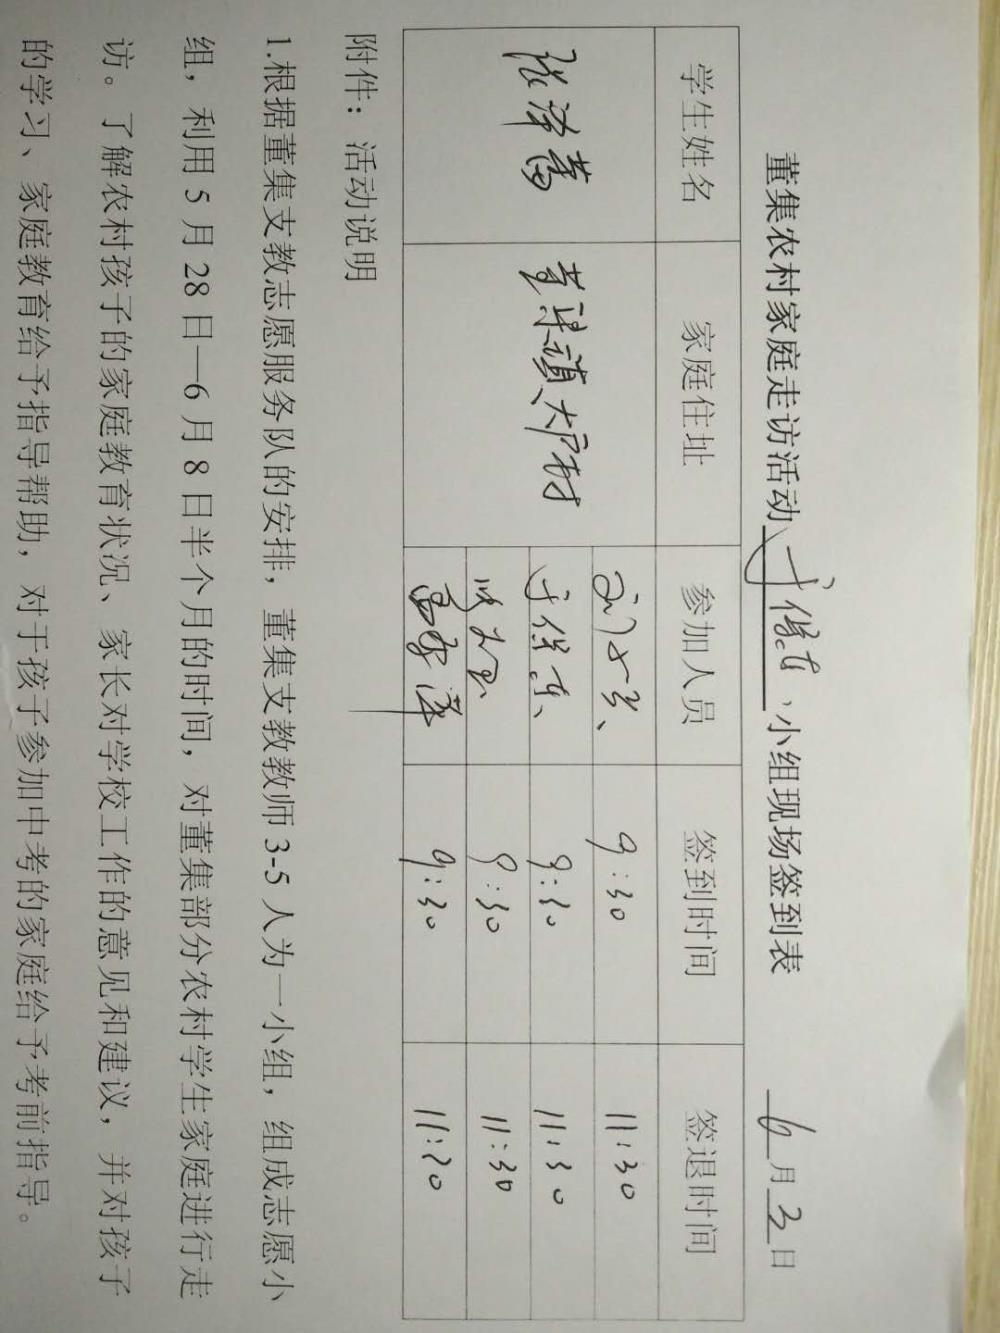 董集农村家庭走访活动 小组现场签到表 6月3日
学生姓名 家庭住址 参加人员 签到时间 签退时间
董集镇大户村
9:30 11:30
9:30 11:30
9:30 11:30
9:30 11:30
附件：活动说明
1.根据董集支教志愿服务队的安排，董集支教教师3-5人为一小组，组成志愿小
组，利用5月28日—6月8日半个月的时间，对董集部分农村学生家庭进行走
访。了解农村孩子的家庭教育状况、家长对学校工作的意见和建议，并对孩子
的学习、家庭教育给予指导帮助，对于孩子参加中考的家庭给予考前指导。